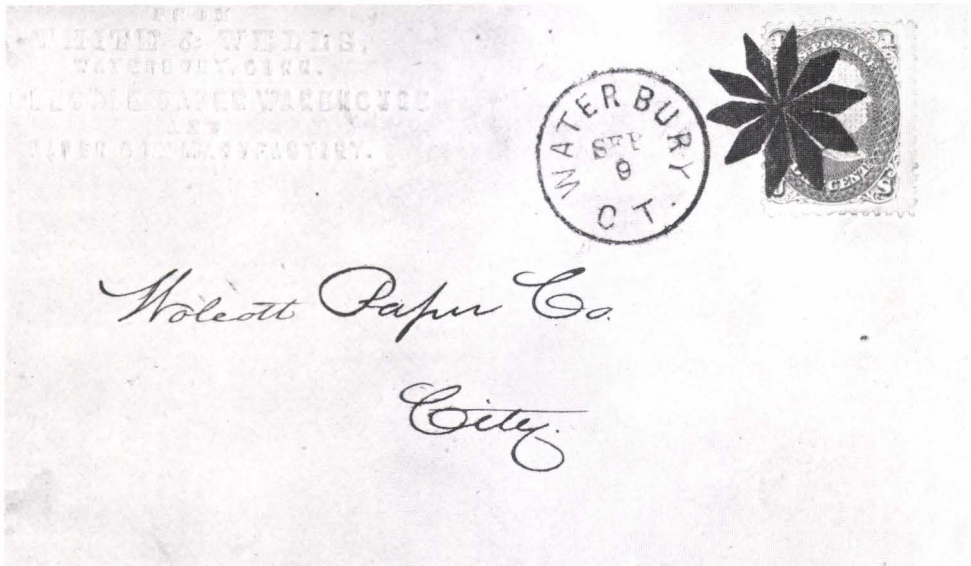 FROM
WHITE & WELLS,
WATERBURY, CONN.
PAPER WAREHOUSE
AND
PAPER BOX MANUFACTORY.
WATERBURY
SEP
9
CT.
POSTAGE
CENT
Wolcott Paper Co.
City.